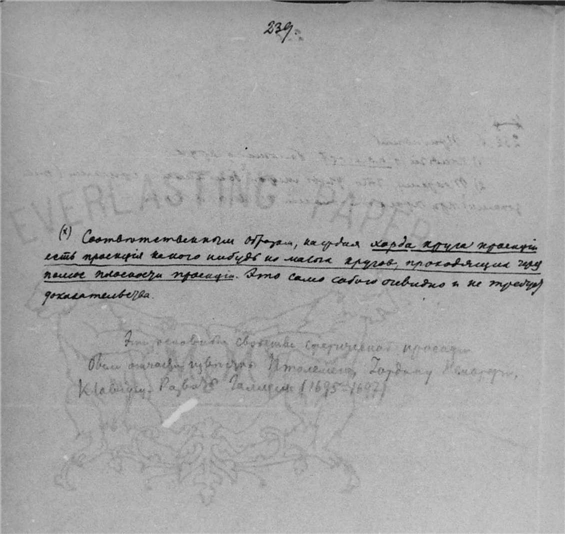 239.
EVERLASTING PAPER
(*) Соответственным образом, каждая хорда круга проекции
есть проекція какого нибудь из малых кругов, проходящих через
полюс плоскости проекціи. Это само собою очевидно и не требует
доказательства.
Эти основныя свойства сферической проекции
были отчасти известны Птолемею, Иордану Неморарію,
Клавіусу. Развито Галлеем (1695-1697)